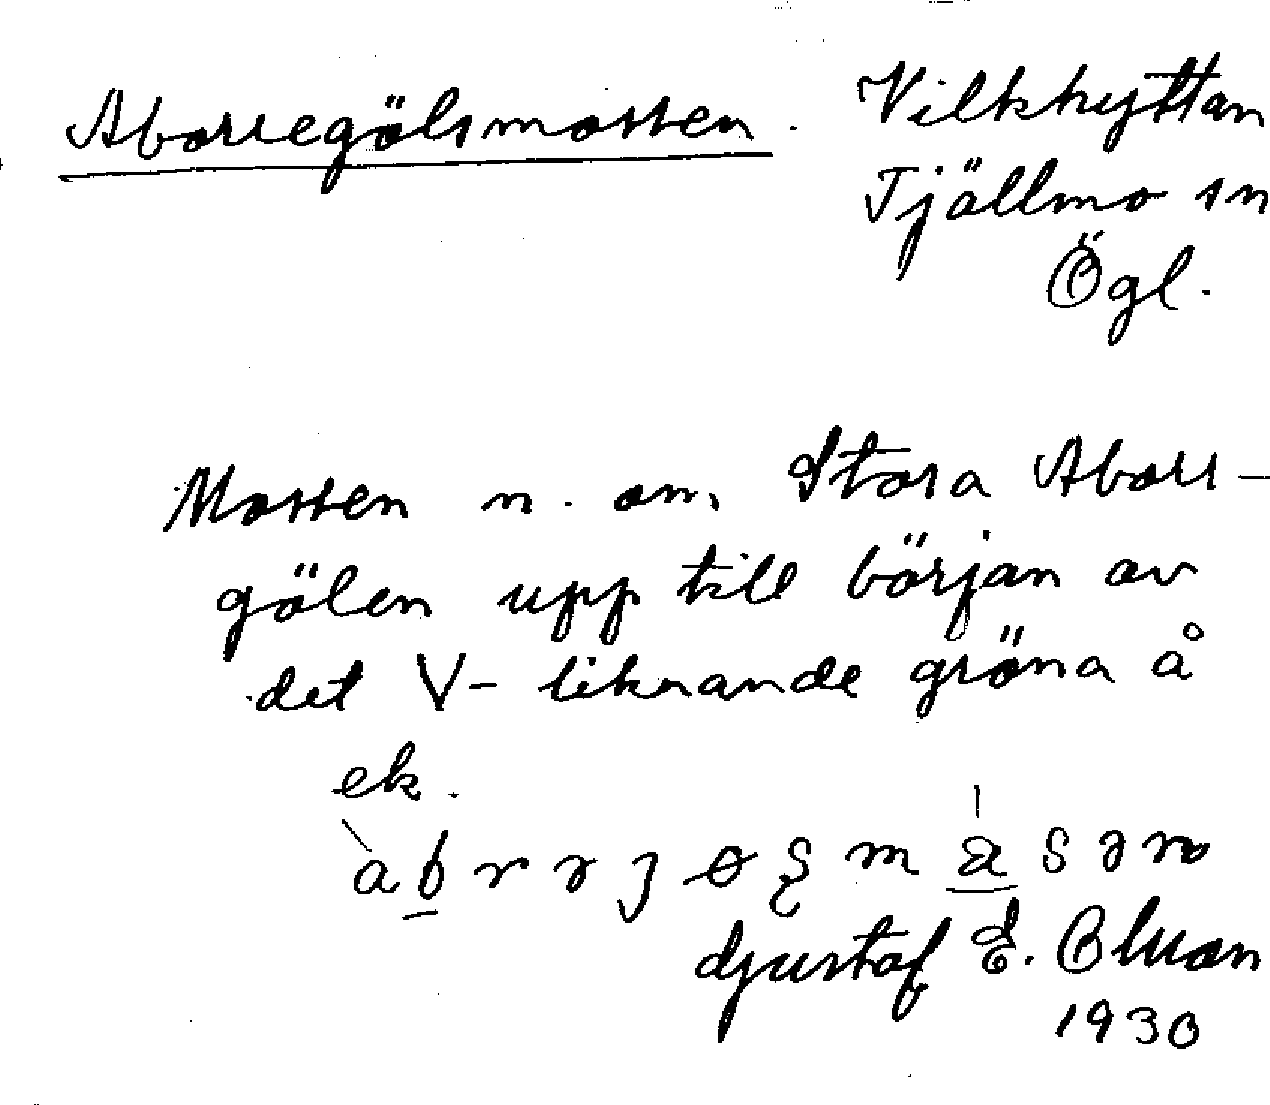 Aborregölsmossen. Vilkhyttan
Tjällmo sn
Ögl.
Mossen n. om Stora Aborr-
gölen upp till början av
det V-liknande gröna å
ek.
Gustaf E. Bluan
1930